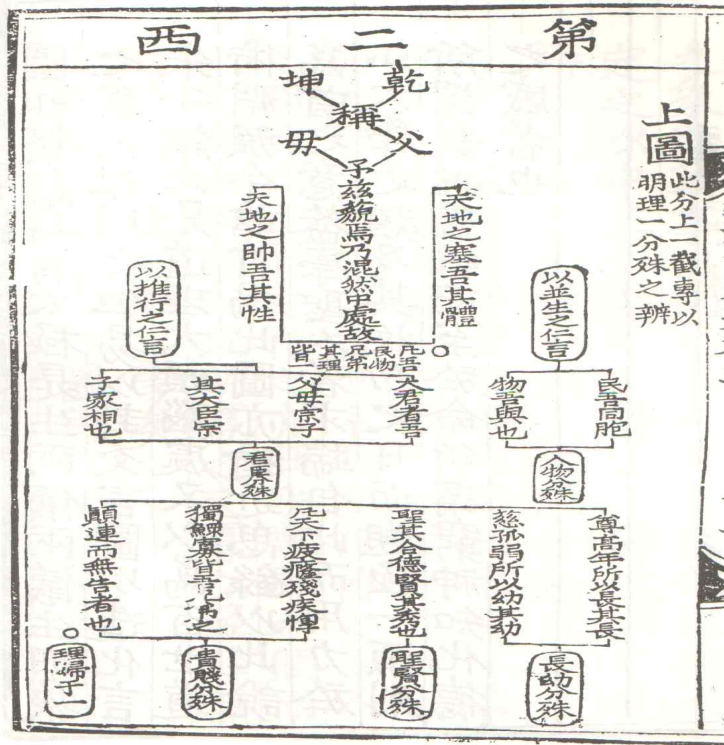 第二西
上圖
此分上一截專以
明理一分殊之辨
乾坤
稱
父母
予茲藐焉乃混然中處故
天地之塞吾其體
天地之帥吾其性
凡吾
民物
兄弟
其理
皆
以並生之仁言
民吾同胞
物吾與也
人物分殊
以推行之仁言
大君者吾
父母宗子
其大臣宗
子家相也
君臣分殊
尊高年所以長其長
慈孤弱所以幼其幼
長幼分殊
聖其合德賢其秀也
聖賢分殊
凡天下疲癃殘疾惸
獨鰥寡皆吾兄弟之
顛連而無告者也
貴賤分殊
理歸于一